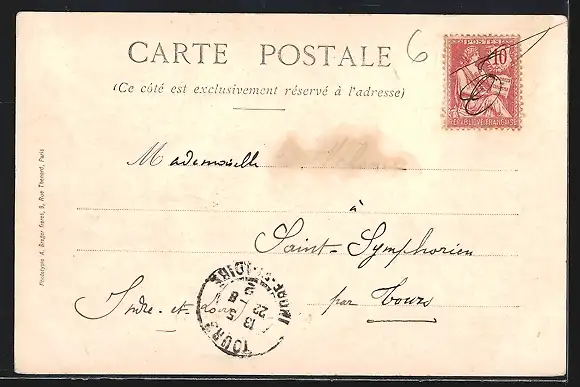 CARTE POSTALE
6
(Ce côté est exclusivement réservé à l'adresse)
POSTES
10
RÉPUBLIQUE FRANÇAISE
Mademoiselle
à
Saint-Symphorien
par Tours
Indre-et-Loire
TOURS
INDRE-ET-LOIRE
13
22
Phototypie A. Breger frères, 9, Rue Thénard, Paris